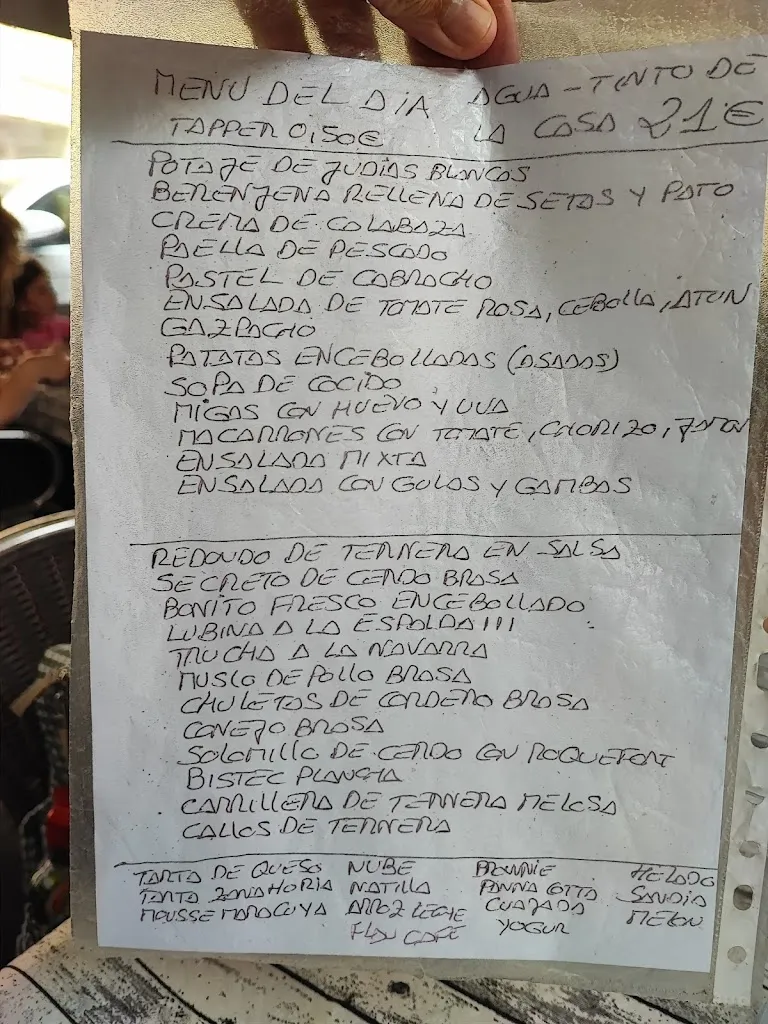 MENU DEL DIA AGUA - TINTO DE
TAPPER 0,50€ LA CASA 21€
POTAJE DE JUDIAS BLANCAS
BERENJENA RELLENA DE SETAS Y PATO
CREMA DE CALABAZA
PAELLA DE PESCADO
PASTEL DE CABRACHO
ENSALADA DE TOMATE ROSA, CEBOLLA, ATUN
GAZPACHO
PATATAS ENCEBOLLADAS (ASADAS)
SOPA DE COCIDO
MIGAS CON HUEVO Y UVA
MACARRONES CON TOMATE, CHORIZO, JAMON
ENSALADA MIXTA
ENSALADA CON GULAS Y GAMBAS
REDONDO DE TERNERA EN SALSA
SECRETO DE CERDO BRASA
BONITO FRESCO ENCEBOLLADO
LUBINA A LA ESPALDA !!!
TRUCHA A LA NAVARRA
MUSLO DE POLLO BRASA
CHULETAS DE CORDERO BRASA
CONEJO BRASA
SOLOMILLO DE CERDO CON ROQUEFORT
BISTEC PLANCHA
CARRILLERA DE TERNERA MELOSA
CALLOS DE TERNERA
TARTA DE QUESO NUBE BROWNIE HELADO
TARTA ZANAHORIA NATILLA PANNA COTTA SANDIA
MOUSSE MARACUYA ARROZ LECHE CUAJADA MELON
FLAN CAFE YOGUR